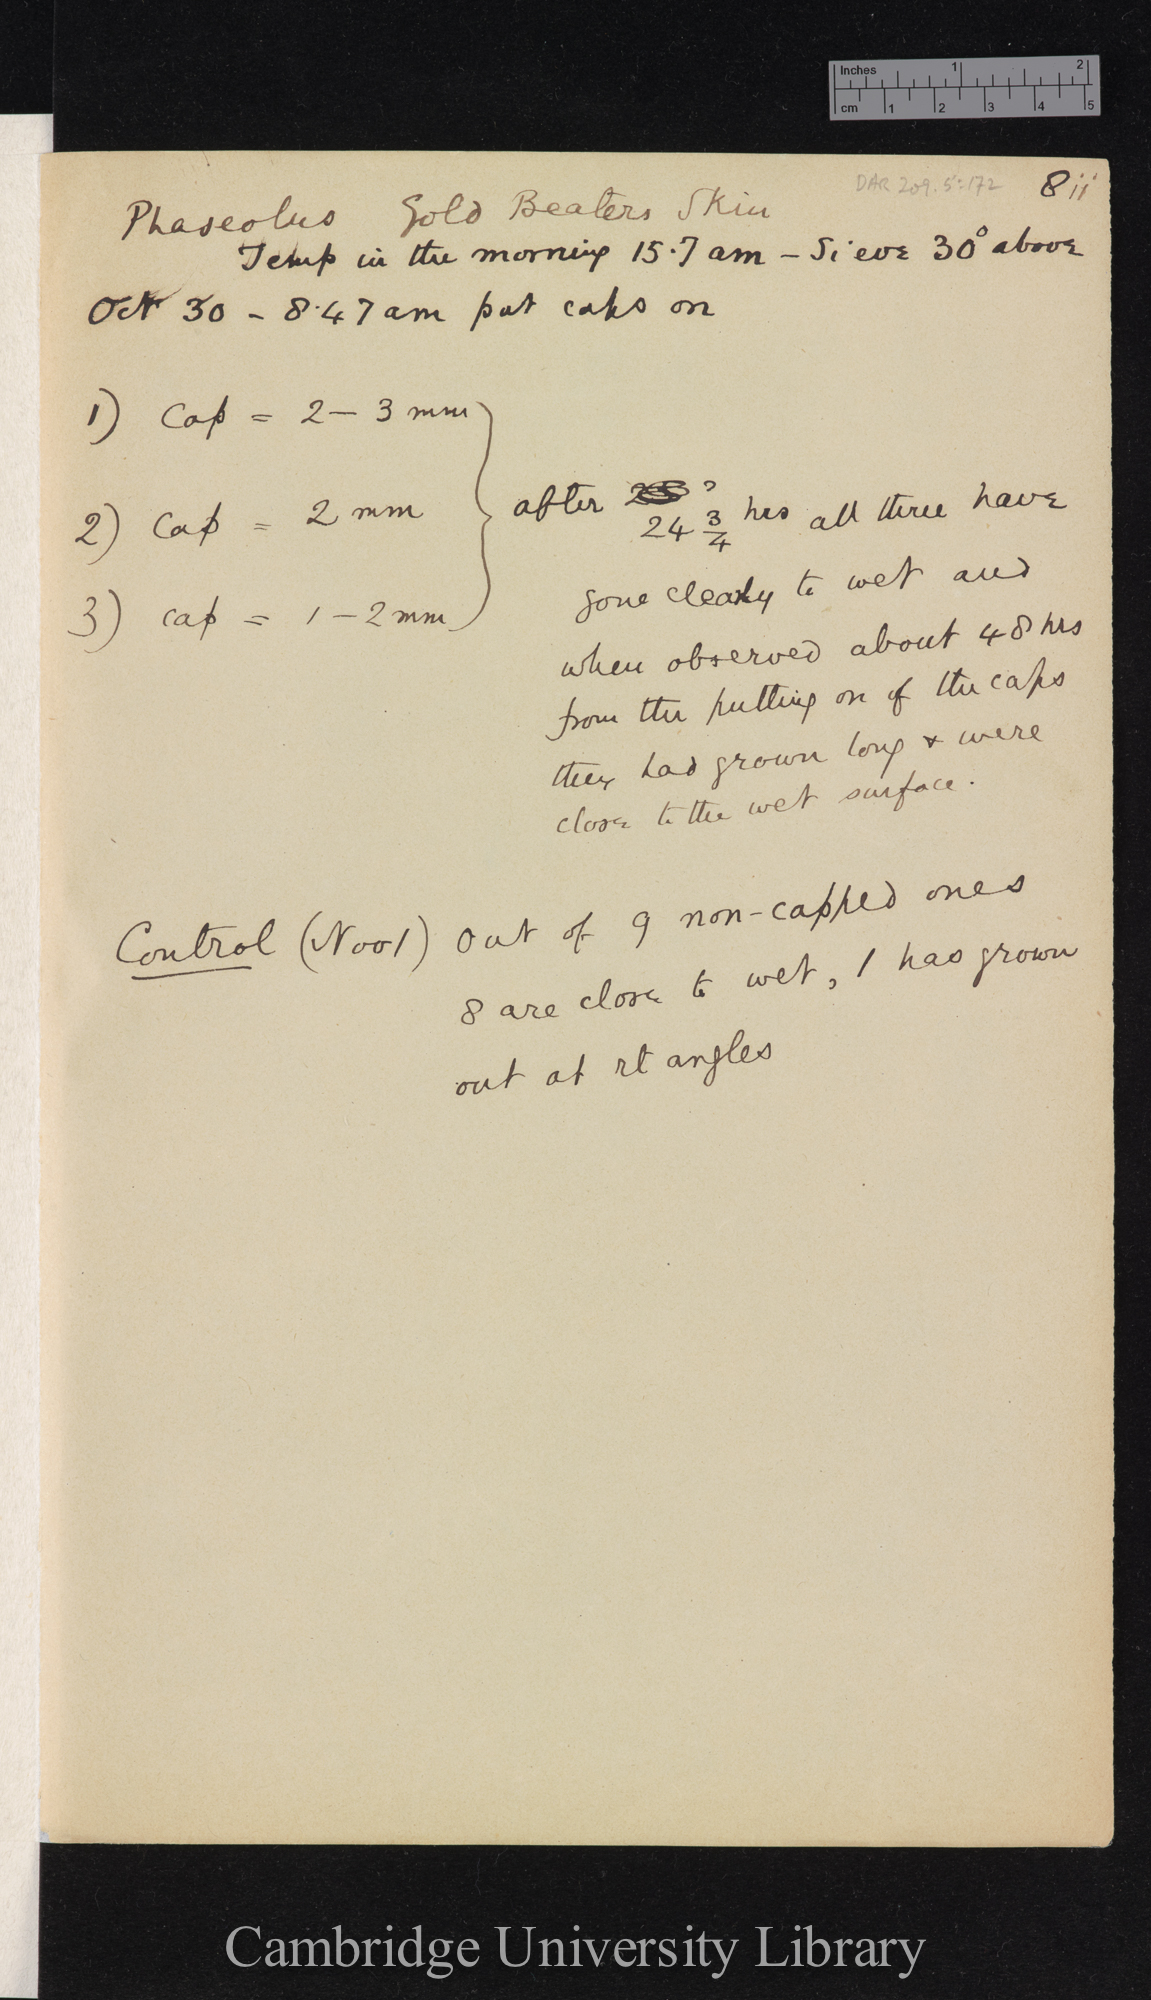 Inches 1 2
cm 1 2 3 4 5
DAR 209.5:172 8ii
Phaseolus Gold Beaters Skin
Temp in the morning 15.7 am – Sieve 30° above
Oct 30 – 8.47 am put caps on
1) Cap = 2 – 3 mm
2) Cap = 2 mm
3) cap = 1 – 2 mm
after
24 3/4 hrs all three have
gone clearly to wet and
when observed about 48 hrs
from the putting on of the caps
they had grown long & were
close to the wet surface.
Control (No 1) Out of 9 non-capped ones
8 are close to wet, 1 has grown
out at rt angles
Cambridge University Library